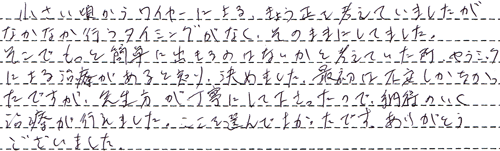 小さい頃からワイヤーによるきょう正を考えていましたが
なかなか行うタイミングがなく、そのままにしてました。
そこでもっと簡単に出きるのはないかと考えていた所、セラミック
による治療があると知り、決めました。最初は不安しかなかっ
たですが、先生方が丁寧にして下さったので、納得のいく
治療が行えました。ここを選んでよかったです。ありがとう
ございました。